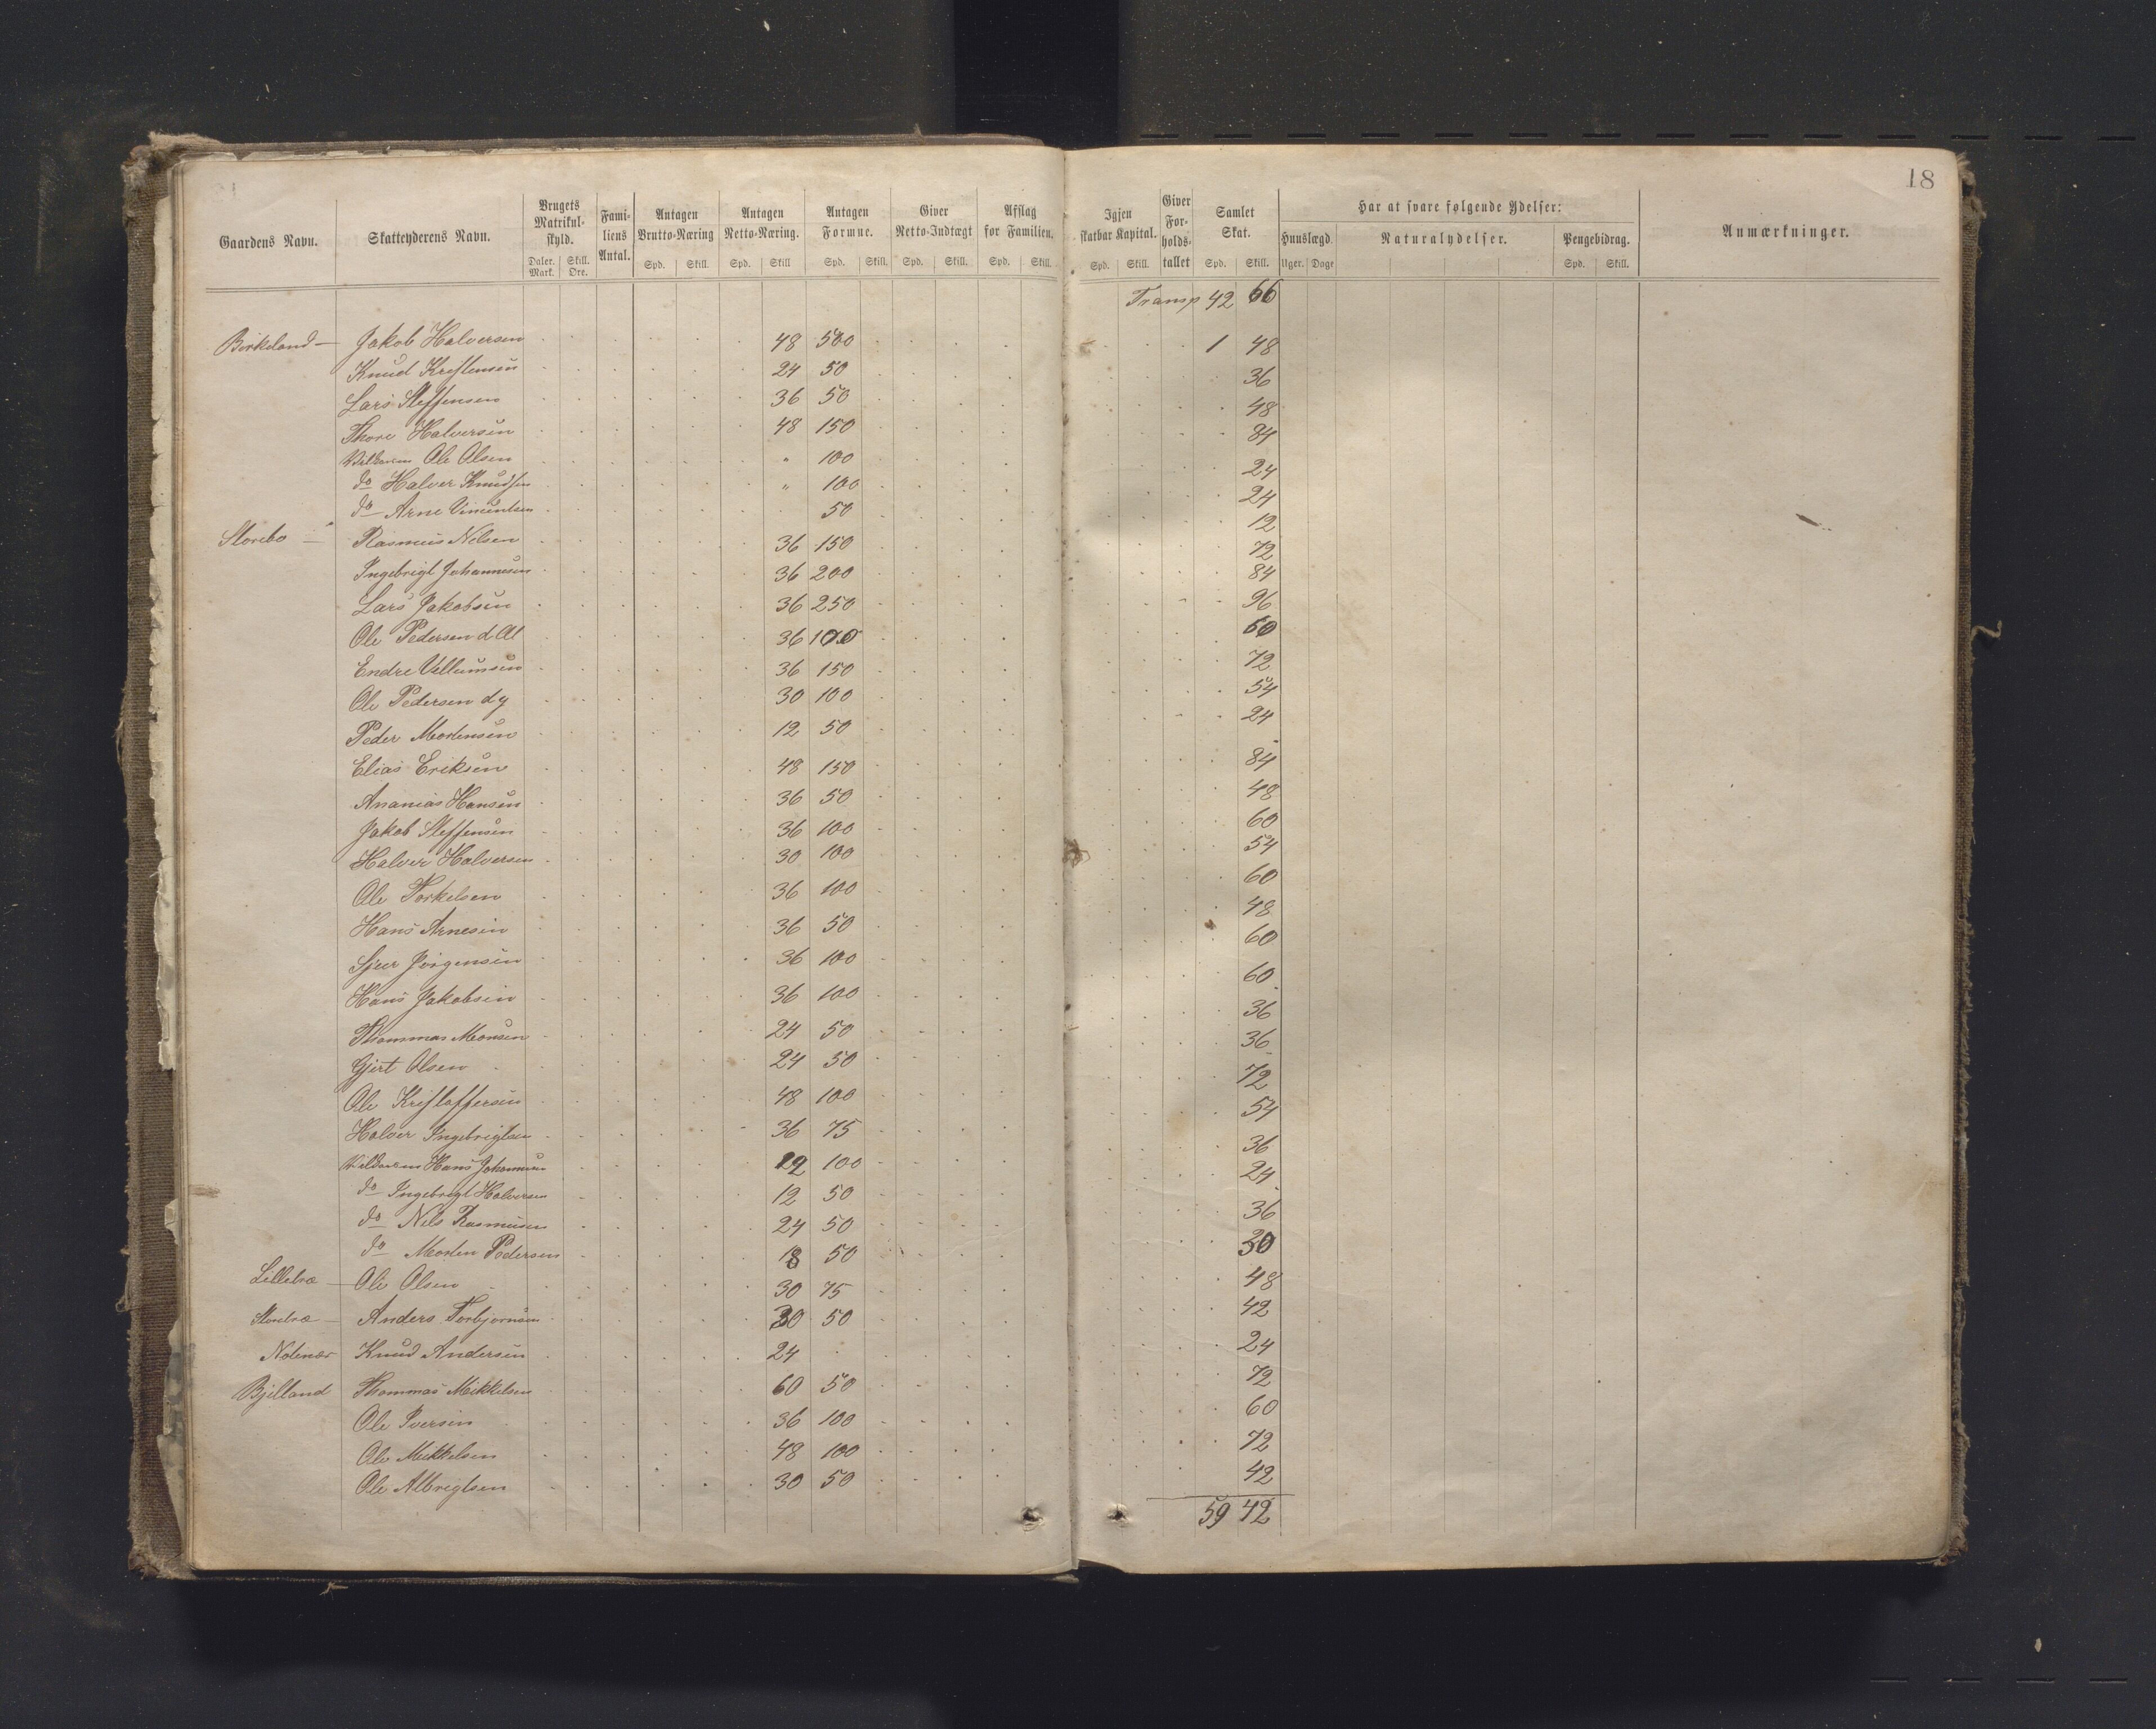 18
Gaardens Navn. Skatteyderens Navn. Brugets Matrikul-skyld. Fami-liens Antal. Antagen Brutto-Næring Antagen Netto-Næring. Antagen Formue. Giver Netto-Indtægt Afslag for Familien. Igjen skatbar Kapital. Giver For-holds-tallet Samlet Skat. Har at svare følgende Ydelser: Anmærkninger.
Huuslægd. Naturalydelser. Pengebidrag.
Daler. Mark. Skill. Øre. Spd. Skill. Spd. Skill Spd. Skill. Spd. Skill. Spd. Skill. Spd. Skill. Spd. Skill. Uger. Dage Spd. Skill.
Transp 42 66
Birkeland — Jakob Halversen 48 500 1 48
Knud Kristensen 24 50 36
Lars Steffensen 36 50 48
Thore Halversen 48 150 84
Ole Olsen " 100 24
do Halver Knudsen " 100 24
do Arne Vincentsen 50 12
Storebø — Rasmus Nilsen 36 150 72
Ingebrigt Johannesen 36 200 84
Lars Jakobsen 36 250 96
Ole Pedersen d Æl 36 100 60
Endre Villumsen 36 150 72
Ole Pedersen d y 30 100 54
Peder Mortensen 12 50 24
Elias Eriksen 48 150 84
Ananias Hansen 36 50 48
Jakob Steffensen 36 100 60
Halver Halversen 30 100 54
Ole Torkelsen 36 100 60
Hans Arnesen 36 50 48
Sjur Jørgensen 36 100 60
Hans Jakobsen 36 100 60
Thommas Monsen 24 50 36
Gjert Olsen 24 50 36
Ole Kristoffersen 48 100 72
Halver Ingebrigtsen 36 75 54
Hans Johannesen 12 100 36
do Ingebrigt Halversen 12 50 24
do Nils Rasmussen 24 50 36
do Morten Pedersen 18 50 30
Lillebø — Ole Olsen 30 75 48
Storebø — Anders Torbjørnsen 30 50 42
Knud Andersen 24 24
Bjelland Thommas Mikkelsen 60 50 72
Ole Iversen 36 100 60
Ole Mikkelsen 48 100 72
Ole Albrigtsen 30 50 42
59 42